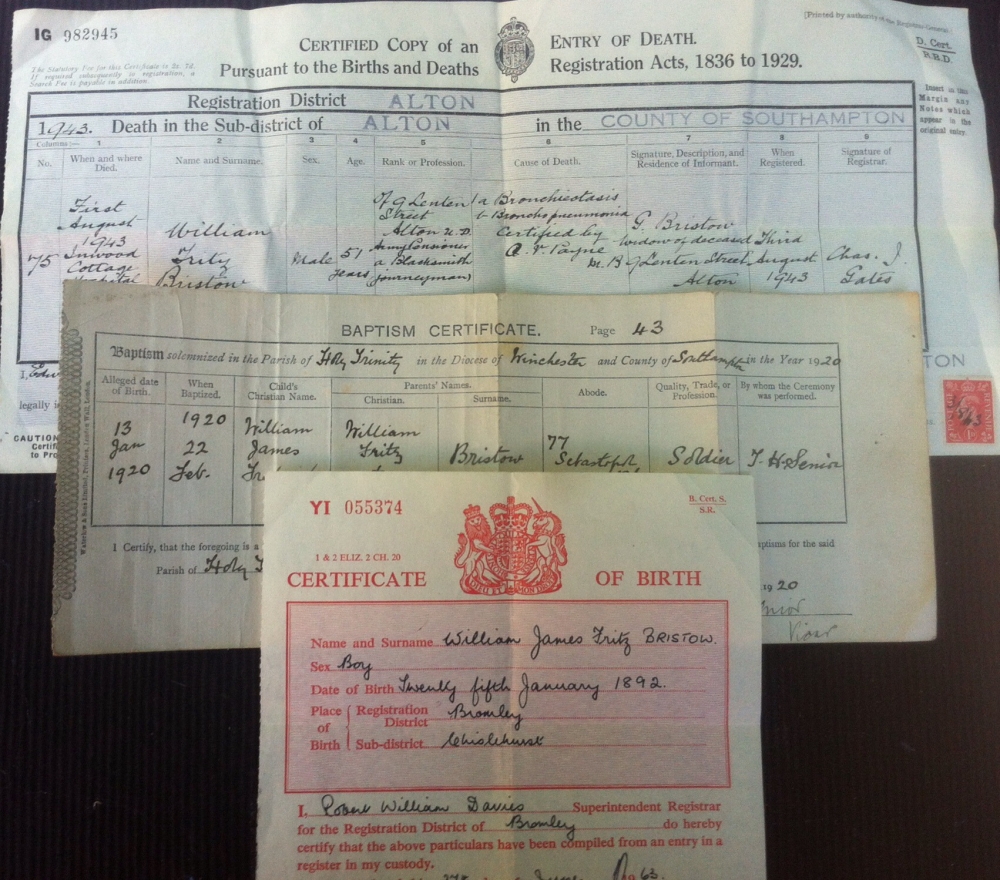 IG 982945
[Printed by authority of the Registrar-General]
CERTIFIED COPY of an ENTRY OF DEATH.
D. Cert.
R.B.D.
The Statutory Fee for this Certificate is 2s. 7d.
If required subsequently to registration, a
Search Fee is payable in addition.
Pursuant to the Births and Deaths Registration Acts, 1836 to 1929.
Insert in this
Margin any
Notes which
appear in the
original entry.
Registration District ALTON
1943. Death in the Sub-district of ALTON in the COUNTY OF SOUTHAMPTON
Columns:— 1 2 3 4 5 6 7 8 9
No. When and where Died. Name and Surname. Sex. Age. Rank or Profession. Cause of Death. Signature, Description, and Residence of Informant. When Registered. Signature of Registrar.
75 First August 1943 Inwood Cottage Hospital
William Fritz Bristow
Male
51 years
Of 9 Lenten Street Alton U.D. Army Pensioner a Blacksmith (journeyman)
1a Bronchiectasis
b Bronchopneumonia
Certified by
M.B
G. Bristow widow of deceased 9 Lenten Street, Alton
Third August 1943
Chas. J. Gates
I,
legally
CAUTION
Certif
to Pro
TON
BAPTISM CERTIFICATE. Page 43
Baptism solemnized in the Parish of Holy Trinity in the Diocese of Winchester and County of Southampton in the Year 1920
Alleged date of Birth. When Baptized. Child's Christian Name. Parents' Names. Christian. Surname. Abode. Quality, Trade, or Profession. By whom the Ceremony was performed.
13 Jan 1920
1920 22 Feb.
William James
William Fritz
Bristow
77 Sebastopol
Soldier
T. H. Senior
I Certify, that the foregoing is a
ptisms for the said
Parish of Holy T
19 20
Vicar
YI 055374
B. Cert. S.
S.R.
1 & 2 ELIZ. 2 CH. 20
CERTIFICATE OF BIRTH
Name and Surname William James Fritz BRISTOW.
Sex Boy
Date of Birth Twenty fifth January 1892.
Place of Birth
Registration District Bromley
Sub-district Chislehurst
I, Robert William Davies Superintendent Registrar
for the Registration District of Bromley do hereby
certify that the above particulars have been compiled from an entry in a
register in my custody.
27th June 1963.